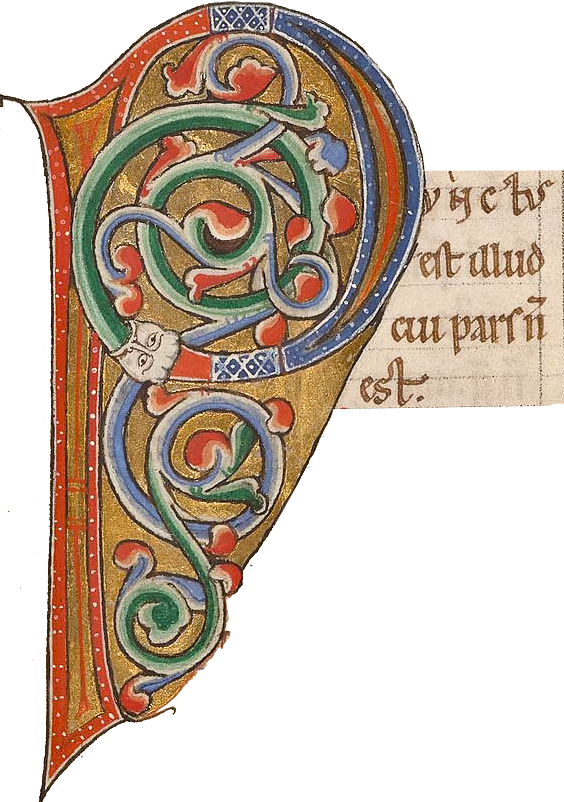 Punctus
est illud
cui parſ n̄
est.